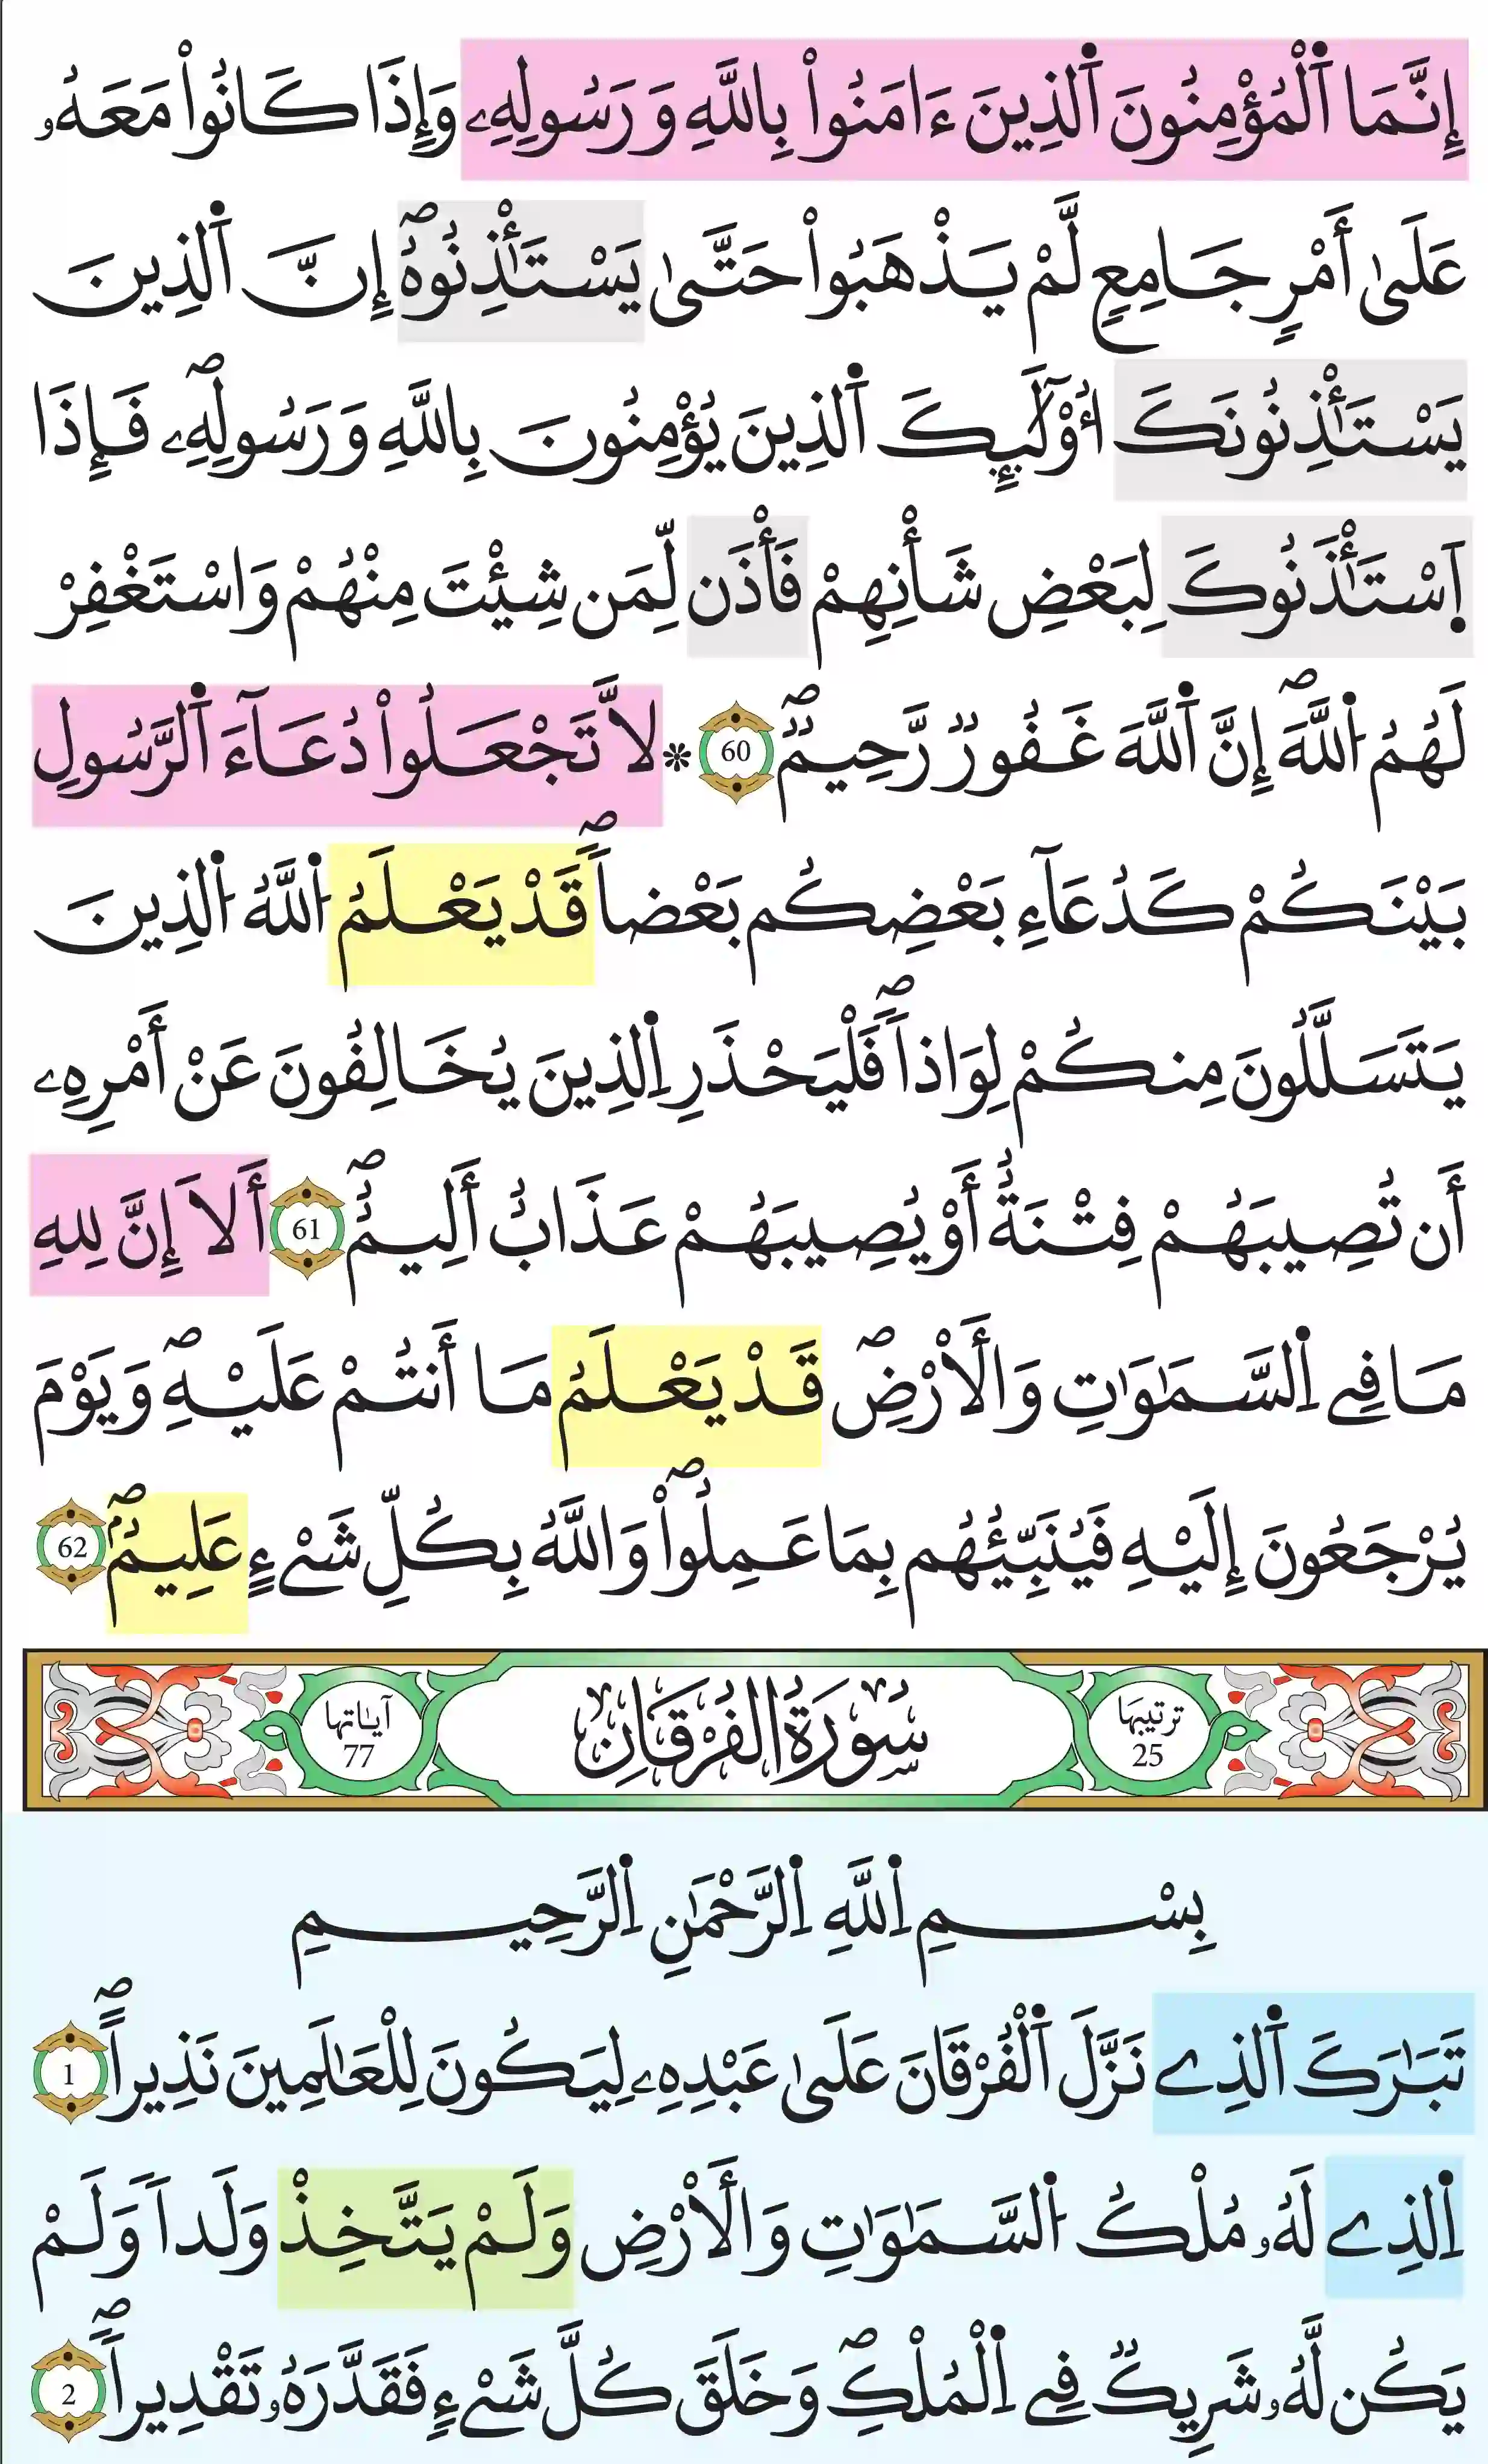 إِنَّمَا اَ۬لْمُؤْمِنُونَ اَ۬لذِينَ ءَامَنُواْ بِاللَّهِ وَرَسُولِهِۦ وَإِذَا كَانُواْ مَعَهُۥ
عَلَىٰٓ أَمْرٖ جَامِعٖ لَّمْ يَذْهَبُواْ حَتَّىٰ يَسْتَٰٔذِنُوهُۖ إِنَّ اَ۬لذِينَ
يَسْتَٰٔذِنُونَكَ أُوْلَٰٓئِكَ اَ۬لذِينَ يُؤْمِنُونَ بِاللَّهِ وَرَسُولِهِۦۖ فَإِذَا
اَ۪سْتَٰٔذَنُوكَ لِبَعْضِ شَأْنِهِمْ فَأْذَن لِّمَن شِئْتَ مِنْهُمْ وَاسْتَغْفِرْ
لَهُمُ اُ۬للَّهَۖ إِنَّ اَ۬للَّهَ غَفُورٞ رَّحِيمٞۖ 60 * لَّا تَجْعَلُواْ دُعَآءَ اَ۬لرَّسُولِ
بَيْنَكُمْ كَدُعَآءِ بَعْضِكُم بَعْضاٗۖ قَدْ يَعْلَمُ اُ۬للَّهُ اُ۬لذِينَ
يَتَسَلَّلُونَ مِنكُمْ لِوَاذاٗۖ فَلْيَحْذَرِ اِ۬لذِينَ يُخَالِفُونَ عَنْ أَمْرِهِۦٓ
أَن تُصِيبَهُمْ فِتْنَةٌ أَوْ يُصِيبَهُمْ عَذَابٌ أَلِيمٌۖ 61 أَلَآ إِنَّ لِلهِ
مَا فِے اِ۬لسَّمَٰوَٰتِ وَالْأَرْضِۖ قَدْ يَعْلَمُ مَآ أَنتُمْ عَلَيْهِۖ وَيَوْمَ
يُرْجَعُونَ إِلَيْهِ فَيُنَبِّئُهُم بِمَا عَمِلُواْۖ وَاللَّهُ بِكُلِّ شَےْءٍ عَلِيمٌۖ 62
ترتيبها 25 سُورَةُ الفُرْقَانِ آياتها 77
بِسْمِ اِ۬للَّهِ اِ۬لرَّحْمَٰنِ اِ۬لرَّحِيمِ
تَبَٰرَكَ اَ۬لذِے نَزَّلَ اَ۬لْفُرْقَانَ عَلَىٰ عَبْدِهِۦ لِيَكُونَ لِلْعَٰلَمِينَ نَذِيراًۖ 1
اِ۬لذِے لَهُۥ مُلْكُ اُ۬لسَّمَٰوَٰتِ وَالْأَرْضِ وَلَمْ يَتَّخِذْ وَلَداٗ وَلَمْ
يَكُن لَّهُۥ شَرِيكٞ فِے اِ۬لْمُلْكِۖ وَخَلَقَ كُلَّ شَےْءٖ فَقَدَّرَهُۥ تَقْدِيراٗۖ 2